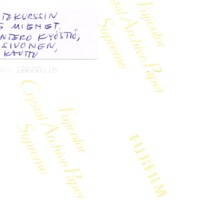 TEKURSSIN
S MIEHET.
ANTERO KYÖSTIÖ,
SIVONEN,
KAUTTU
Fujicolor
Crystal Archive Paper
Supreme
Fujicolor
Crystal Archive Paper
Supreme
FUJIFILM